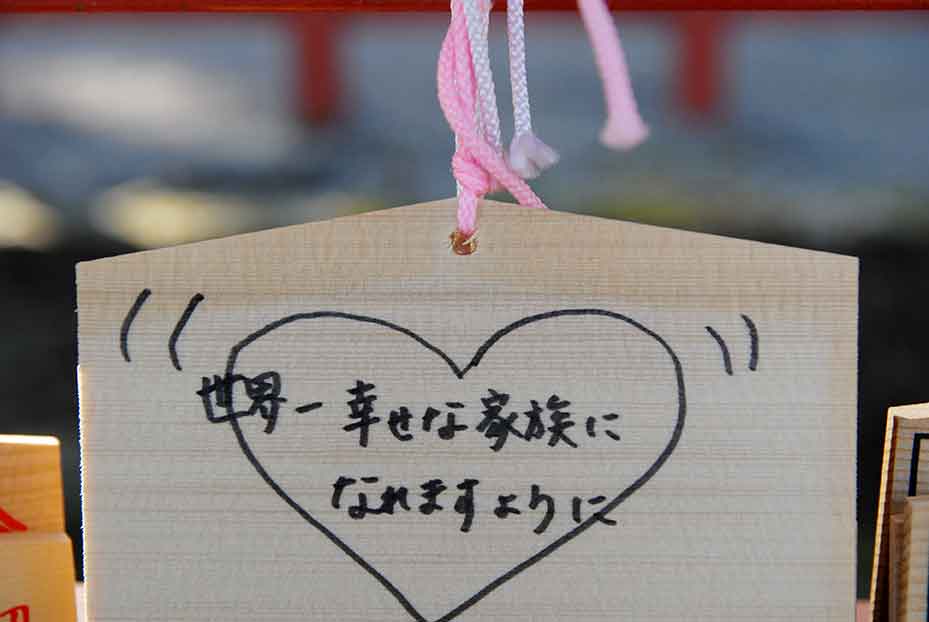 世界一幸せな家族に
なれますように